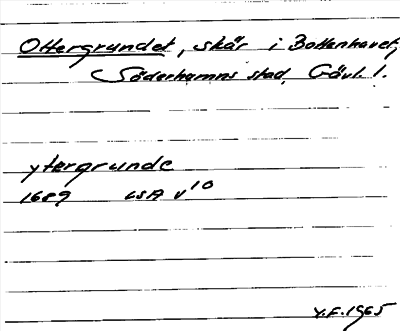 Ottergrundet, skär i Bottenhavet,
Söderhamns stad, Gävl. l.
ytergrunde
1689 LSA v10
Y.F. 1965